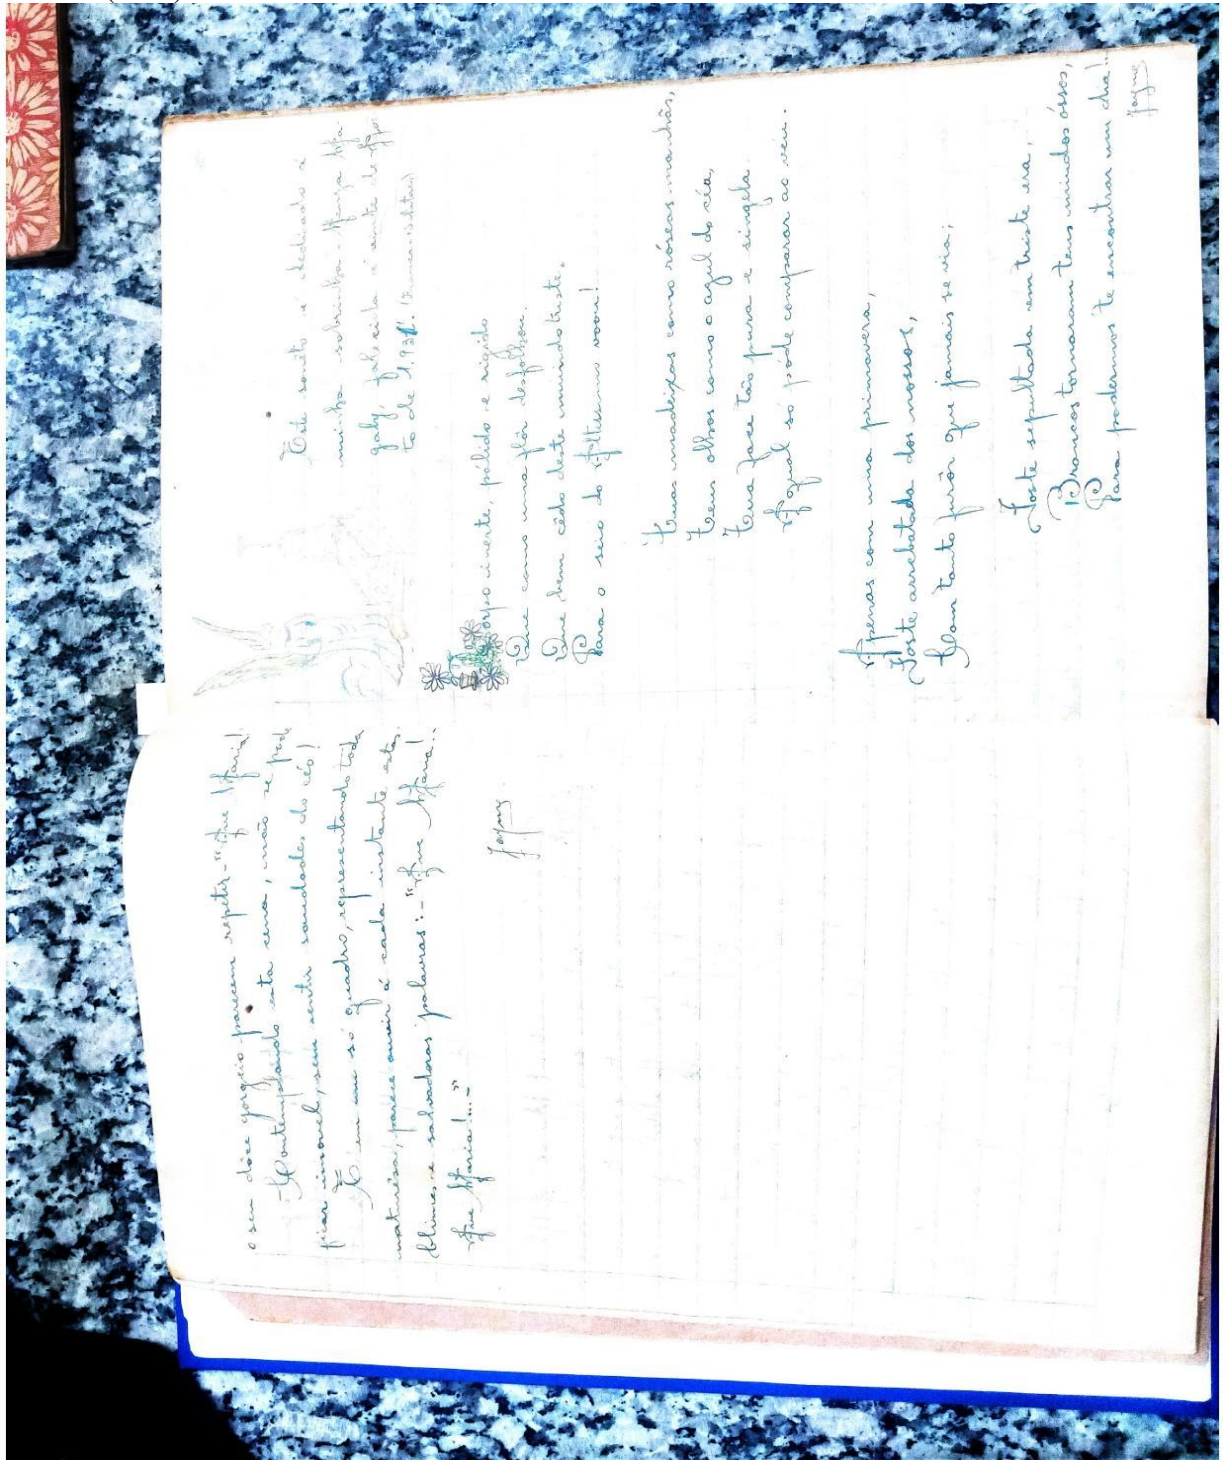 o seu dôce gorgeio parecem repetir - "Ave Maria!
Contemplando esta cena, não se pode
ficar imovel, sem sentir saudades do céo!
E em um só quadro, representando tôda
naturêsa, parece ouvir á cada instante estas
blimes e salvadoras palavras: - "Ave Maria!
Ave Maria!... -"
Jayme
Este sonêto é dedicado á
minha sobrinha
falecida a
to de 1.931.
Corpo inerte, pálido e rigido
Que como uma flôr desfolhou.
Que bem cêdo deste mundo triste,
Para o seio do Altissimo voou!
Tuas madeixas como róseas manhãs,
Teus olhos como o azul do céo,
Tua face tão pura e singela
A qual só póde comparar ao veu.
Apenas com uma primavera,
Foste arrebatada dos nossos,
Com tanto furôr que jamais se via;
Foste sepultada em triste era,
Brancos tornaram teus miudos óssos,
Para podermos te encontrar um dia!..
Jayme